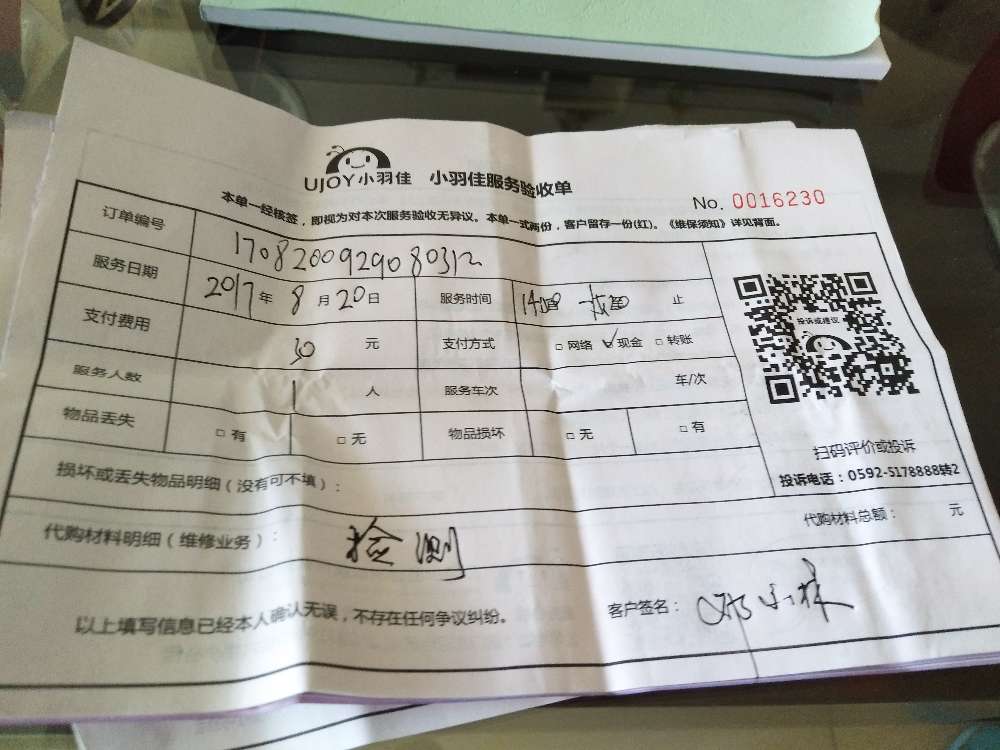 UJOY小羽佳 小羽佳服务验收单
No. 0016230
本单一经核签，即视为对本次服务验收无异议。本单一式两份，客户留存一份(红)。《维保须知》详见背面。
订单编号 1708200929080312
服务日期 2017年8月20日 服务时间 止
支付费用 30 元 支付方式 □网络 ✓现金 □转账
服务人数 1 人 服务车次 车/次
物品丢失 □有 □无 物品损坏 □无 □有
投诉或建议
扫码评价或投诉
投诉电话：0592-5178888转2
损坏或丢失物品明细（没有可不填）：
代购材料明细（维修业务）： 检测 代购材料总额： 元
以上填写信息已经本人确认无误，不存在任何争议纠纷。 客户签名：